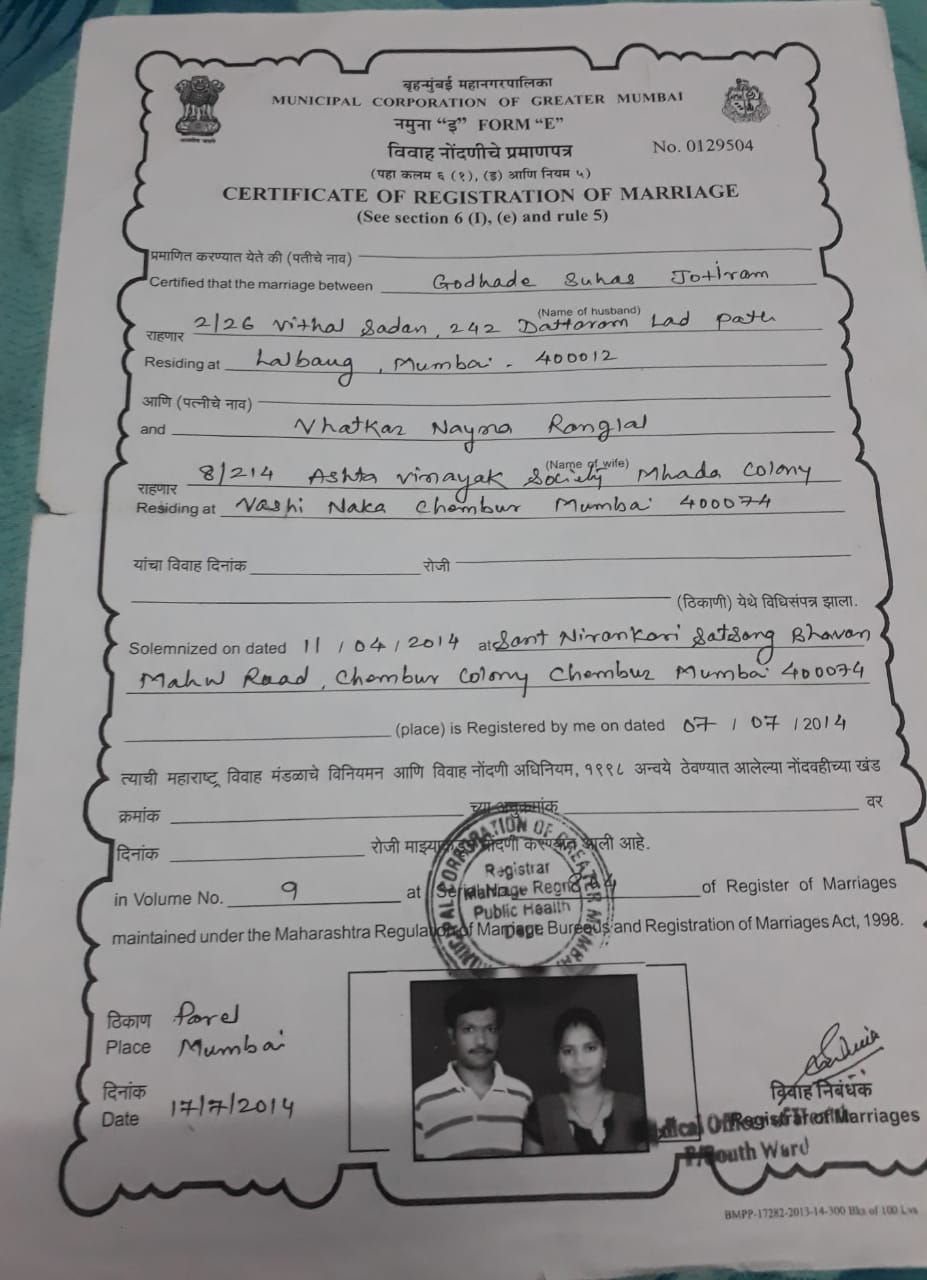 बृहन्मुंबई महानगरपालिका
MUNICIPAL CORPORATION OF GREATER MUMBAI
नमुना “इ” FORM “E”
विवाह नोंदणीचे प्रमाणपत्र
No. 0129504
(पहा कलम ६ (१), (इ) आणि नियम ५)
CERTIFICATE OF REGISTRATION OF MARRIAGE
(See section 6 (I), (e) and rule 5)
प्रमाणित करण्यात येते की (पतीचे नाव)
Certified that the marriage between Godhade Suhas Jotiram
(Name of husband)
राहणार 2/26 Vithal Sadan, 242 Dattaram Lad Path
Residing at Lalbaug, Mumbai - 400012
आणि (पत्नीचे नाव)
and Vhatkar Nayna Ranglal
(Name of wife)
राहणार 8/214 Ashta Vinayak Society Mhada Colony
Residing at Vashi Naka Chembur Mumbai 400074
यांचा विवाह दिनांक रोजी
(ठिकाणी) येथे विधिसंपन्न झाला.
Solemnized on dated 11/04/2014 at Sant Nirankari Satsang Bhavan
Mahul Road, Chembur Colony Chembur Mumbai 400074
(place) is Registered by me on dated 07/07/2014
त्याची महाराष्ट्र विवाह मंडळाचे विनियमन आणि विवाह नोंदणी अधिनियम, १९९८ अन्वये ठेवण्यात आलेल्या नोंदवहीच्या खंड
क्रमांक च्या अनुक्रमांक वर
दिनांक रोजी माझ्याकडून नोंदणी करण्यात आली आहे.
MUNICIPAL CORPORATION OF GREATER MUMBAI
Registrar
Public Health
in Volume No. 9 at Serial No. of Register of Marriages
maintained under the Maharashtra Regulation of Marriage Bureaus and Registration of Marriages Act, 1998.
ठिकाण Parel
Place Mumbai
दिनांक
Date 17/7/2014
विवाह निबंधक
Registrar of Marriages
South Ward
BMPP-17282-2013-14-300 Bks of 100 Lvs